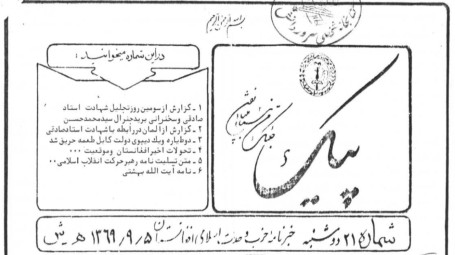 بسم الله الرحمن الرحیم
در این شماره میخوانید :
۱ - گزارش از سومین روز تجلیل شهادت استاد
صادقی و سخنرانی برید جنرال سید محمد حسن
۲ - گزارش از المان در رابطه با شهادت استاد صادقی
۳ - دو طیاره و یک دیپوی دولت کابل طعمه حریق شد
۴ - تحولات اخیر افغانستان و موقعیت ۰۰۰
۵ - متن تسلیت نامه رهبر حرکت انقلاب اسلامی ۰۰
۶ - نامه آیت الله بهشتی
پیک
شماره ۲۱ دوشنبه خبرنامه حزب وحدت اسلامی افغانستان ۱۳۶۹/۹/۵ ه ش